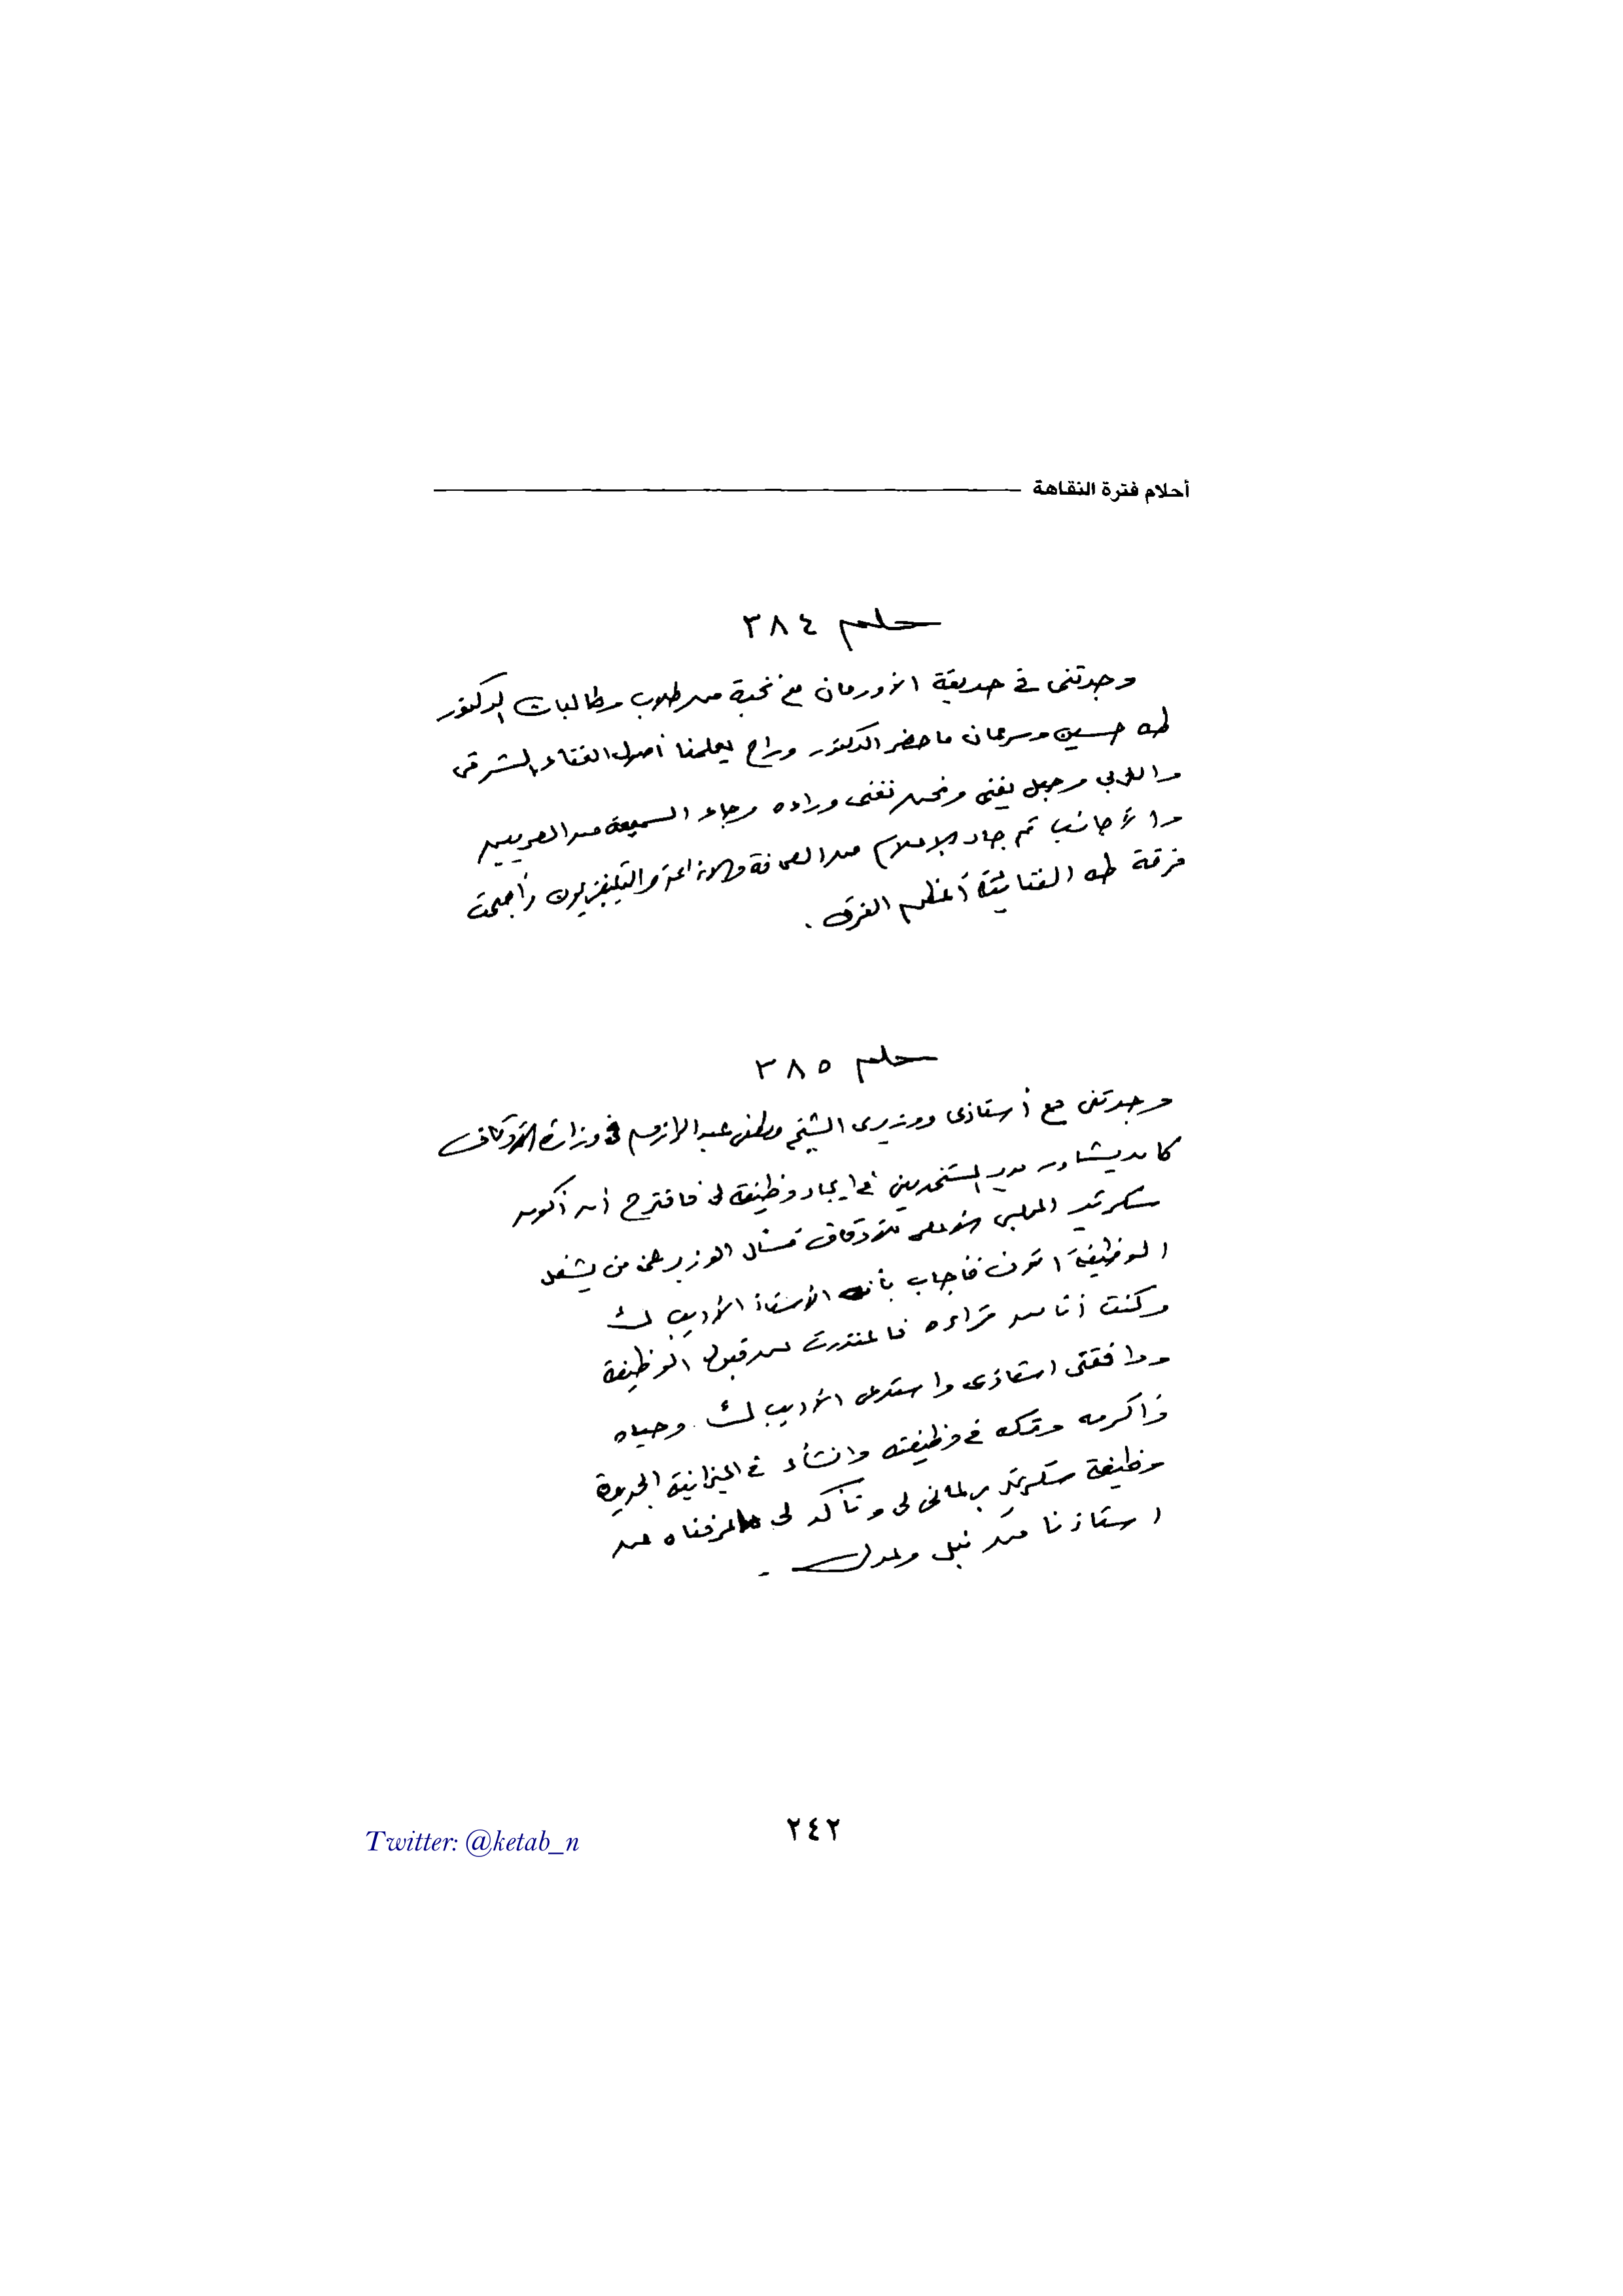 أحلام فترة النقاهة
حلم ٣٨٤
وجدتنى فى حديقة الأورمان مع نخبة من طلاب وطالبات الدكتور
طه حسين وسرعان ما حضر الدكتور وراح يعلمنا أصول الغناء الشرقى
والغربى وجعل يغنى ونحن نغنى وراءه وجاء السميعة من المصريين
والأجانب ثم جاء الإعلام من الصحافة والإذاعة والتليفزيون وأصبحت
فرقة طه الغنائية أعظم الفرق .
حلم ٣٨٥
وجدتنى مع أستاذى ووزيرى الشيخ مصطفى عبد الرازق فى وزارة الأوقاف
كان يشاور مدير المستخدمين فى إيجاد وظيفة لى فاقترح أن أكون
سكرتير المجلس الأعلى للأوقاف فسأل الوزير عمن يشغل
الوظيفة الآن فأجاب بأنه الأستاذ الأديب ك
وكنت أنا من قراءه فاعتذرت عن قبول الوظيفة
ووافقنى استاذى واستدعى الأديب ك وحياه
وأكرمه وتركه فى وظيفته وانشأ فى الميزانية الجديدة
وظيفة سكرتير برلمانى لى وتأكد لى ما عرفناه عن
استاذنا من نبل وعدل .
٢٤٢
Twitter: @ketab_n